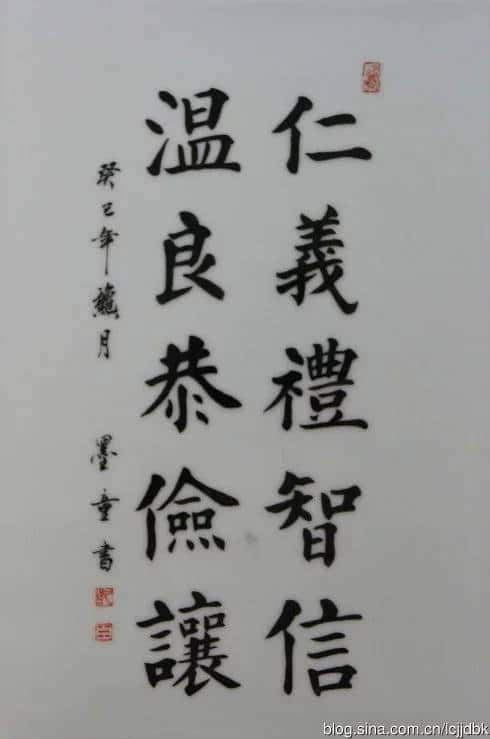 仁義禮智信
温良恭儉讓
癸巳年龍月 墨童書
blog.sina.com.cn/lcjjdbk